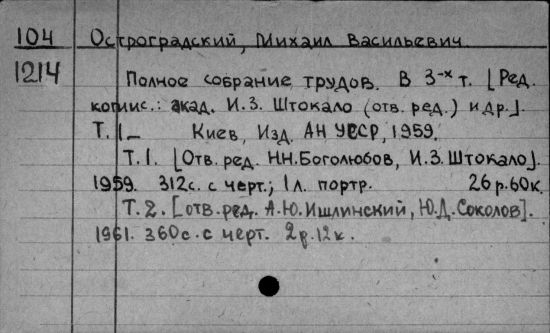 104 Остроградский, Михаил Васильевич.
1214 Полное собрание трудов. В 3-х т. [Ред.
комис.: акад. И.З. Штокало (отв. ред.) и др.].
Т. 1— Киев, Изд. АН УССР, 1959.
Т. 1. [Отв. ред. Н.Н. Боголюбов, И.З. Штокало].
1959. 312 с. с черт.; 1 л. портр. 26 р. 60 к.
Т. 2. [отв. ред. А.Ю. Ишлинский, Ю.Д. Соколов].
1961. 360 с. с черт. 2 р. 12 к.